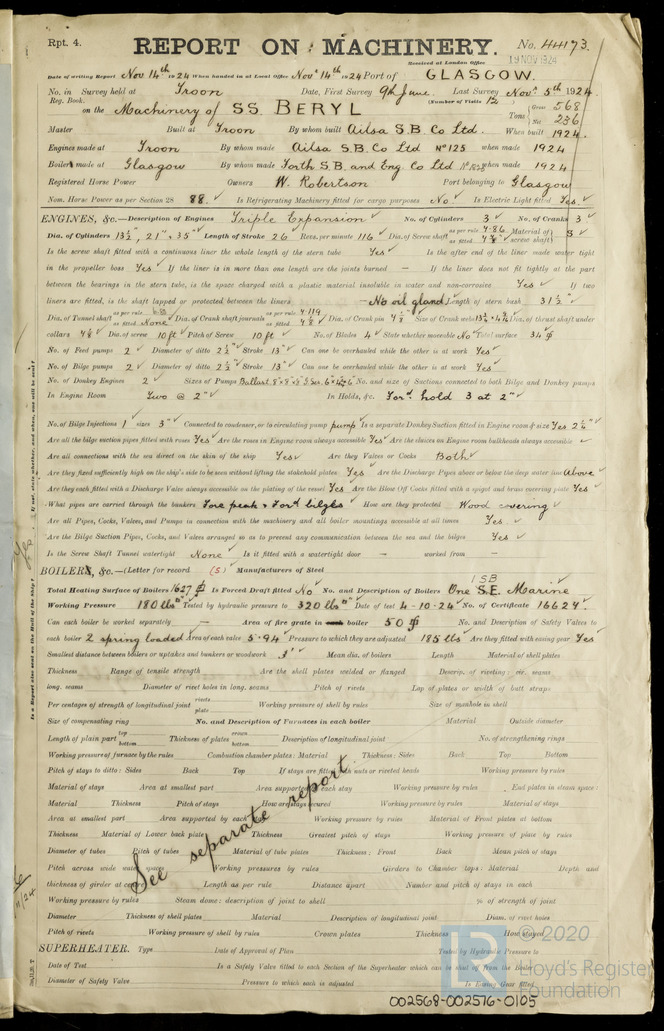 Rpt. 4.
REPORT ON MACHINERY.
No. 44173.
Received at London Office
19 NOV 1924
Date of writing Report Nov 14th 1924 When handed in at Local Office Novr 14th 1924 Port of GLASGOW.
No. in Survey held at Troon Date, First Survey 9th June Last Survey Novr 5th 1924
Reg. Book. (Number of Visits 12
on the Machinery of SS. BERYL Tons Gross 568 Net 236
Master Built at Troon By whom built Ailsa S.B. Co Ltd. When built 1924.
Engines made at Troon By whom made Ailsa S.B. Co Ltd No 125 when made 1924
Boilers made at Glasgow By whom made Forth S.B. and Eng. Co Ltd when made 1924
Registered Horse Power Owners W. Robertson Port belonging to Glasgow
Nom. Horse Power as per Section 28 88. Is Refrigerating Machinery fitted for cargo purposes No Is Electric Light fitted Yes.
ENGINES, &c.—Description of Engines Triple Expansion No. of Cylinders 3 No. of Cranks 3
Dia. of Cylinders 13½, 21" + 35" Length of Stroke 26 Revs. per minute 116 Dia. of Screw shaft as per rule 4.86 as fitted Material of screw shaft S
Is the screw shaft fitted with a continuous liner the whole length of the stern tube Yes Is the after end of the liner made water tight
in the propeller boss Yes If the liner is in more than one length are the joints burned — If the liner does not fit tightly at the part
between the bearings in the stern tube, is the space charged with a plastic material insoluble in water and non-corrosive Yes If two
liners are fitted, is the shaft lapped or protected between the liners — No oil gland Length of stern bush 31½"
Dia. of Tunnel shaft as per rule as fitted None Dia. of Crank shaft journals as per rule as fitted Dia. of Crank pin Size of Crank webs Dia. of thrust shaft under
collars Dia. of screw 10 ft Pitch of Screw 10 ft No. of Blades 4 State whether moveable No Total surface 34
No. of Feed pumps 2 Diameter of ditto 2½" Stroke 13" Can one be overhauled while the other is at work Yes
No. of Bilge pumps 2 Diameter of ditto 2½" Stroke 13" Can one be overhauled while the other is at work Yes
No. of Donkey Engines 2 Sizes of Pumps Ballast No. and size of Suctions connected to both Bilge and Donkey pumps
In Engine Room Two @ 2" In Holds, &c. Ford hold 3 at 2"
No. of Bilge Injections 1 sizes 3" Connected to condenser, or to circulating pump pump Is a separate Donkey Suction fitted in Engine room & size Yes 2½"
Are all the bilge suction pipes fitted with roses Yes Are the roses in Engine room always accessible Yes Are the sluices on Engine room bulkheads always accessible
Are all connections with the sea direct on the skin of the ship Yes Are they Valves or Cocks Both
Are they fixed sufficiently high on the ship's side to be seen without lifting the stokehold plates Yes Are the Discharge Pipes above or below the deep water line Above
Are they each fitted with a Discharge Valve always accessible on the plating of the vessel Yes Are the Blow Off Cocks fitted with a spigot and brass covering plate Yes
What pipes are carried through the bunkers Fore peak + Ford bilges How are they protected Wood covering
Are all Pipes, Cocks, Valves, and Pumps in connection with the machinery and all boiler mountings accessible at all times Yes
Are the Bilge Suction Pipes, Cocks, and Valves arranged so as to prevent any communication between the sea and the bilges Yes
Is the Screw Shaft Tunnel watertight None Is it fitted with a watertight door — worked from —
BOILERS, &c.—(Letter for record (S) Manufacturers of Steel
1SB
Total Heating Surface of Boilers 1627 Is Forced Draft fitted No No. and Description of Boilers One S.E. Marine
Working Pressure 180 lbs Tested by hydraulic pressure to 320 lbs Date of test 4-10-24 No. of Certificate 16624.
Can each boiler be worked separately — Area of fire grate in each boiler 50 No. and Description of Safety Valves to
each boiler 2 spring loaded Area of each valve 5.94 Pressure to which they are adjusted 185 lbs Are they fitted with easing gear Yes
Smallest distance between boilers or uptakes and bunkers or woodwork 3' Mean dia. of boilers Length Material of shell plates
Thickness Range of tensile strength Are the shell plates welded or flanged Descrip. of riveting: cir. seams
long. seams Diameter of rivet holes in long. seams Pitch of rivets Lap of plates or width of butt straps
Per centages of strength of longitudinal joint rivets plate Working pressure of shell by rules Size of manhole in shell
Size of compensating ring No. and Description of Furnaces in each boiler Material Outside diameter
Length of plain part top bottom Thickness of plates crown bottom Description of longitudinal joint No. of strengthening rings
Working pressure of furnace by the rules Combustion chamber plates: Material Thickness: Sides Back Top Bottom
Pitch of stays to ditto: Sides Back Top If stays are fitted with nuts or riveted heads Working pressure by rules
Material of stays Area at smallest part Area supported by each stay Working pressure by rules End plates in steam space:
Material Thickness Pitch of stays How are stays secured Working pressure by rules Material of stays
Area at smallest part Area supported by each stay Working pressure by rules Material of Front plates at bottom
Thickness Material of Lower back plate Thickness Greatest pitch of stays Working pressure of plate by rules
Diameter of tubes Pitch of tubes Material of tube plates Thickness: Front Back Mean pitch of stays
Pitch across wide water spaces Working pressures by rules Girders to Chamber tops: Material Depth and
thickness of girder at centre Length as per rule Distance apart Number and pitch of stays in each
Working pressure by rules Steam dome: description of joint to shell % of strength of joint
Diameter Thickness of shell plates Material Description of longitudinal joint Diam. of rivet holes
Pitch of rivets Working pressure of shell by rules Crown plates Thickness How stayed
See separate report
SUPERHEATER. Type Date of Approval of Plan Tested by Hydraulic Pressure to
Date of Test Is a Safety Valve fitted to each Section of the Superheater which can be shut off from the Boiler
Diameter of Safety Valve Pressure to which each is adjusted Is Easing Gear fitted
LR © 2020
Lloyd's Register
Foundation
002568-002576-0105